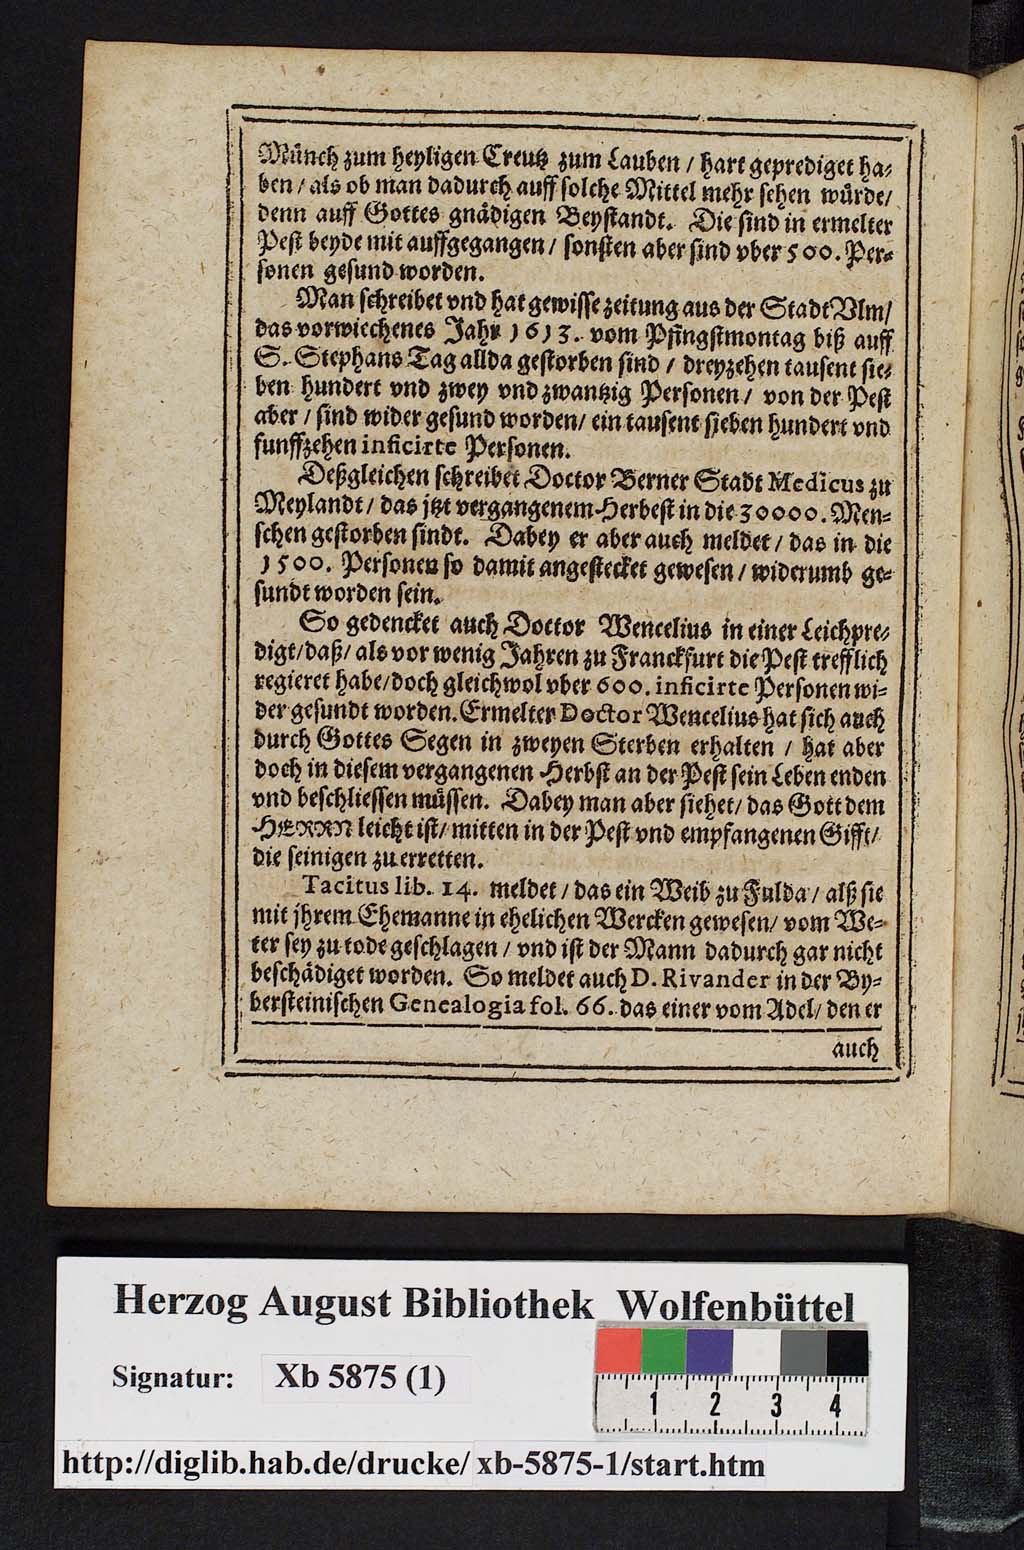 Münch zum heyligen Creutz zum Lauben / hart geprediget ha⸗
ben / als ob man dadurch auff solche Mittel mehr sehen würde/
denn auff Gottes gnädigen Beystandt. Die sind in ermelter
Pest beyde mit auffgegangen / sonsten aber sind vber 500. Per⸗
sonen gesund worden.
Man schreibet vnd hat gewisse zeitung aus der Stadt Vlm/
das vorwiechenes Jahr 1613. vom Pfingstmontag biß auff
S. Stephans Tag allda gestorben sind / dreyzehen tausent sie⸗
ben hundert vnd zwey vnd zwantzig Personen / von der Pest
aber / sind wider gesund worden/ ein tausent sieben hundert vnd
funffzehen inficirte Personen.
Deßgleichen schreibet Doctor Berner Stadt Medicus zu
Meylandt / das jtzt vergangenem Herbest in die 30000. Men⸗
schen gestorben sindt. Dabey er aber auch meldet / das in die
1500. Personen so damit angestecket gewesen / widerumb ge⸗
sundt worden sein.
So gedencket auch Doctor Wencelius in einer Leichpre⸗
digt/daß/ als vor wenig Jahren zu Franckfurt die Pest trefflich
regieret habe/doch gleichwol vber 600. inficirte Personen wi⸗
der gesundt worden. Ermelter Doctor Wencelius hat sich auch
durch Gottes Segen in zweyen Sterben erhalten / hat aber
doch in diesem vergangenen Herbst an der Pest sein Leben enden
vnd beschliessen müssen. Dabey man aber siehet/ das Gott dem
HERRN leicht ist/ mitten in der Pest vnd empfangenen Gifft/
die seinigen zu erretten.
Tacitus lib. 14. meldet / das ein Weib zu Fulda / alß sie
mit jhrem Ehemanne in ehelichen Wercken gewesen/ vom We⸗
ter sey zu tode geschlagen / vnd ist der Mann dadurch gar nicht
beschädiget worden. So meldet auch D. Rivander in der By⸗
bersteinischen Genealogia fol. 66. das einer vom Adel/ den er
auch
Herzog August Bibliothek Wolfenbüttel
Signatur: Xb 5875 (1)
1 2 3 4
http://diglib.hab.de/drucke/xb-5875-1/start.htm